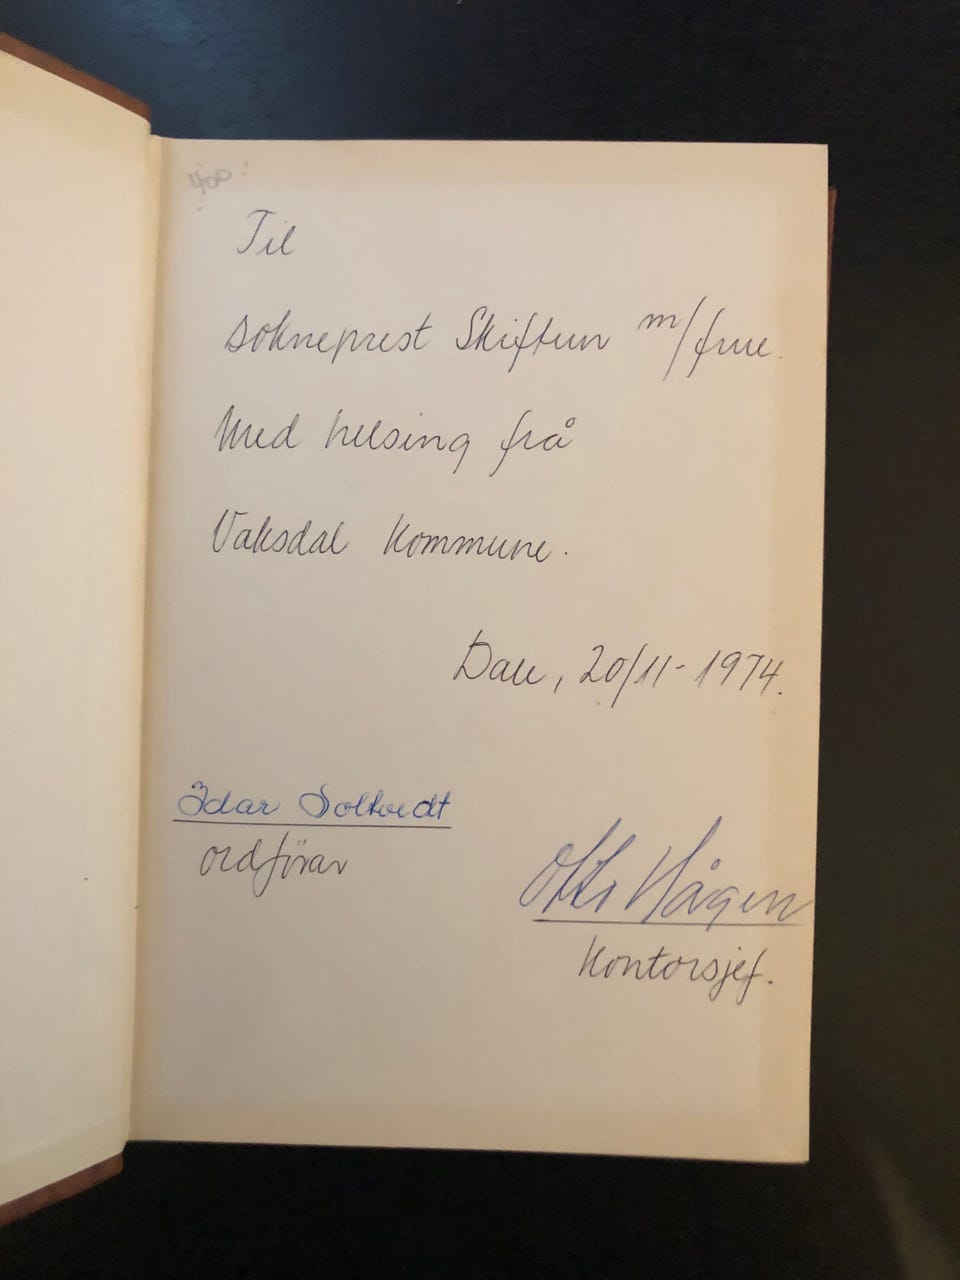 400
Til
sokneprest Skiftun m/frue.
Med helsing frå
Vaksdal kommune.
Dale, 20/11-1974.
Idar Soltvedt
ordförar
Otto Hågen
kontorsjef.